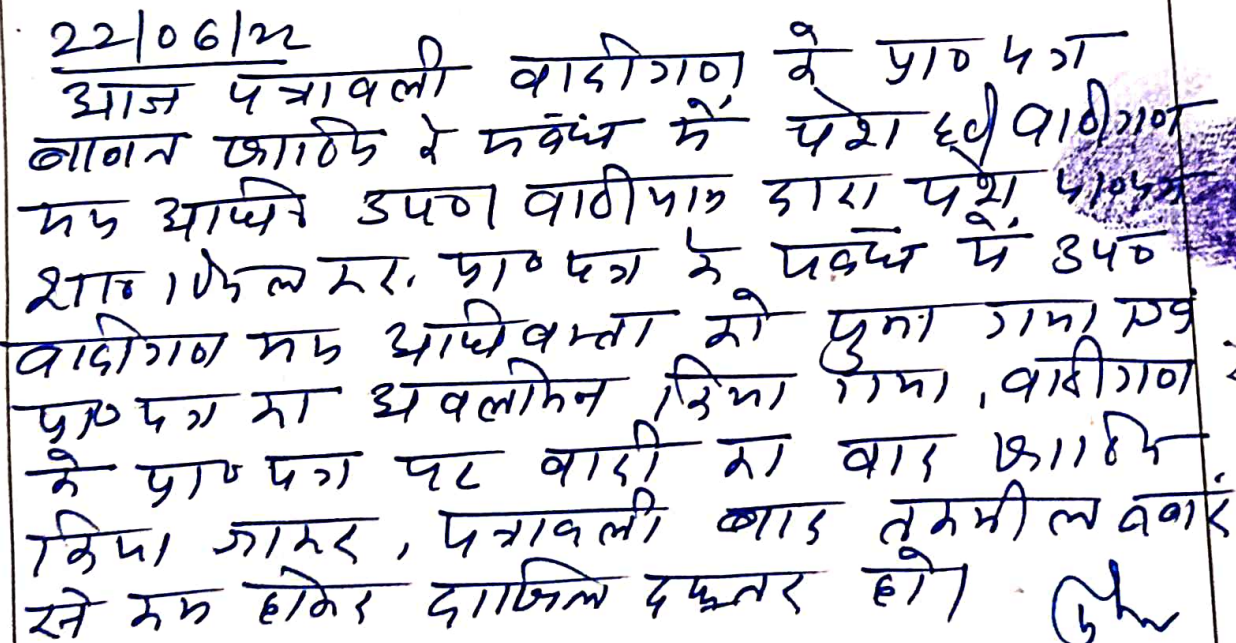 22/06/22
आज पत्रावली वादीगण के प्रा० पत्र
बाबत खारिज के संबंध में पेश हुई वादीगण
मय अधि० उप० वादीगण द्वारा पेश प्रा०पत्र
शामिल कर, प्रा० पत्र के संबंध में उप०
वादीगण मय अधिवक्ता को सुना गया एवं
प्रा० पत्र का अवलोकन किया गया, वादीगण
के प्रा० पत्र पर वादी का वाद खारिज
किया जाकर, पत्रावली बाद तकमील नंबर
से कम होकर दाखिल दफ्तर हो।